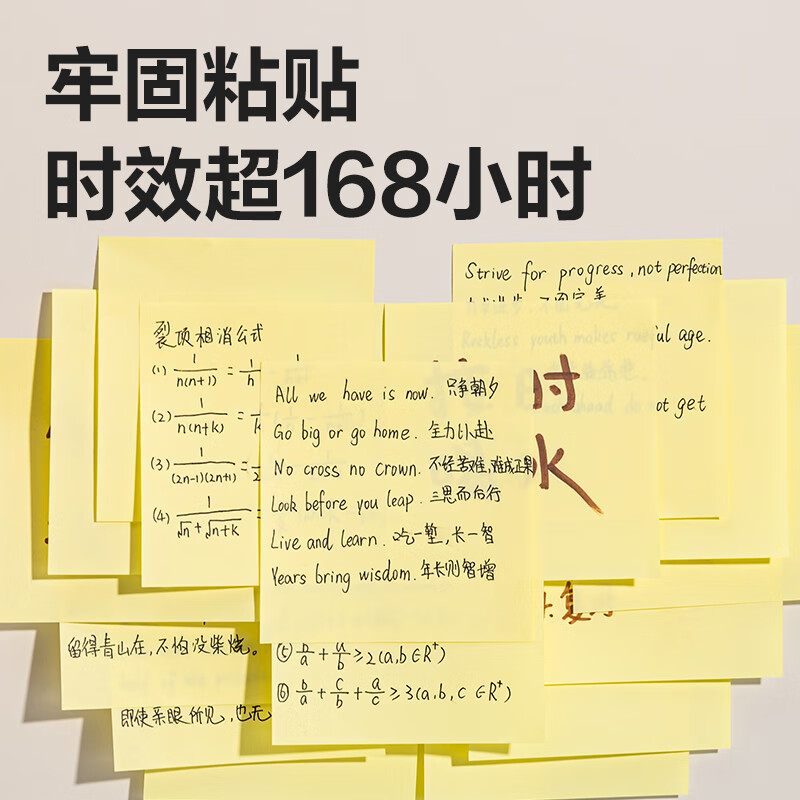 牢固粘贴
时效超168小时
Strive for progress, not perfection
ul age.
ot get
裂项相消公式
(1) 1/n(n+1) = 1/n
(2) 1/n(n+k) =
(3) 1/(2n-1)(2n+1) =
(4) 1/√n+√n+k =
时
K
All we have is now. 只争朝夕
Go big or go home. 全力以赴
No cross no crown. 不经苦难,难成正果
Look before you leap. 三思而后行
Live and learn. 吃一堑,长一智
Years bring wisdom. 年长则智增
复
留得青山在,不怕没柴烧。
即使亲眼所见,也无
⑤ b/a + a/b ≥ 2(a,b∈R⁺)
⑥ b/a + c/b + a/c ≥ 3(a,b,c∈R⁺)